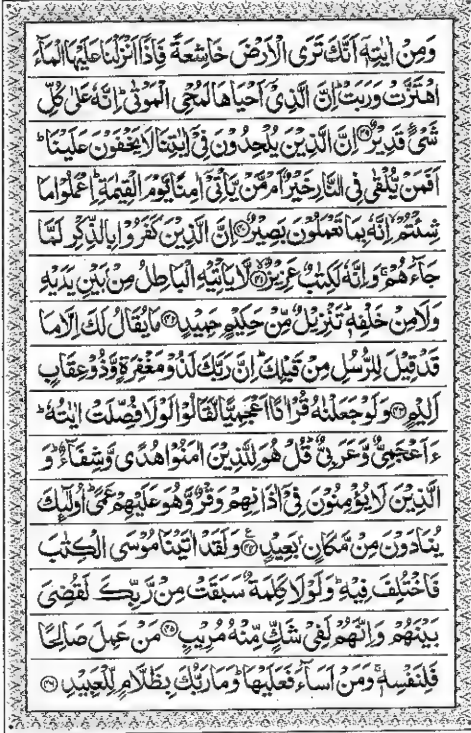 وَمِنْ اٰيٰتِهٖۤ اَنَّكَ تَرَى الْاَرْضَ خَاشِعَةً فَاِذَاۤ اَنْزَلْنَا عَلَيْهَا الْمَآءَ
اهْتَزَّتْ وَرَبَتْ ؕ اِنَّ الَّذِيْۤ اَحْيَاهَا لَمُحْيِ الْمَوْتٰى ؕ اِنَّهٗ عَلٰى كُلِّ
شَيْءٍ قَدِيْرٌ ﴿۳۹﴾ اِنَّ الَّذِيْنَ يُلْحِدُوْنَ فِيْۤ اٰيٰتِنَا لَا يَخْفَوْنَ عَلَيْنَا ؕ
اَفَمَنْ يُّلْقٰى فِي النَّارِ خَيْرٌ اَمْ مَّنْ يَّاْتِيْۤ اٰمِنًا يَّوْمَ الْقِيٰمَةِ ؕ اِعْمَلُوْا مَا
شِئْتُمْ ۙ اِنَّهٗ بِمَا تَعْمَلُوْنَ بَصِيْرٌ ﴿۴۰﴾ اِنَّ الَّذِيْنَ كَفَرُوْا بِالذِّكْرِ لَمَّا
جَآءَهُمْ ۚ وَاِنَّهٗ لَكِتٰبٌ عَزِيْزٌ ﴿۴۱﴾ لَّا يَاْتِيْهِ الْبَاطِلُ مِنْۢ بَيْنِ يَدَيْهِ
وَلَا مِنْ خَلْفِهٖ ؕ تَنْزِيْلٌ مِّنْ حَكِيْمٍ حَمِيْدٍ ﴿۴۲﴾ مَا يُقَالُ لَكَ اِلَّا مَا
قَدْ قِيْلَ لِلرُّسُلِ مِنْ قَبْلِكَ ؕ اِنَّ رَبَّكَ لَذُوْ مَغْفِرَةٍ وَّذُوْ عِقَابٍ
اَلِيْمٍ ﴿۴۳﴾ وَلَوْ جَعَلْنٰهُ قُرْاٰنًا اَعْجَمِيًّا لَّقَالُوْا لَوْلَا فُصِّلَتْ اٰيٰتُهٗ ؕ
ءَاَعْجَمِيٌّ وَّعَرَبِيٌّ ؕ قُلْ هُوَ لِلَّذِيْنَ اٰمَنُوْا هُدًى وَّشِفَآءٌ ؕ وَ
الَّذِيْنَ لَا يُؤْمِنُوْنَ فِيْۤ اٰذَانِهِمْ وَقْرٌ وَّهُوَ عَلَيْهِمْ عَمًى ؕ اُولٰٓئِكَ
يُنَادَوْنَ مِنْ مَّكَانٍۭ بَعِيْدٍ ﴿۴۴﴾ وَلَقَدْ اٰتَيْنَا مُوْسَى الْكِتٰبَ
فَاخْتُلِفَ فِيْهِ ؕ وَلَوْلَا كَلِمَةٌ سَبَقَتْ مِنْ رَّبِّكَ لَقُضِيَ
بَيْنَهُمْ ؕ وَاِنَّهُمْ لَفِيْ شَكٍّ مِّنْهُ مُرِيْبٍ ﴿۴۵﴾ مَنْ عَمِلَ صَالِحًا
فَلِنَفْسِهٖ ۚ وَمَنْ اَسَآءَ فَعَلَيْهَا ؕ وَمَا رَبُّكَ بِظَلَّامٍ لِّلْعَبِيْدِ ﴿۴۶﴾